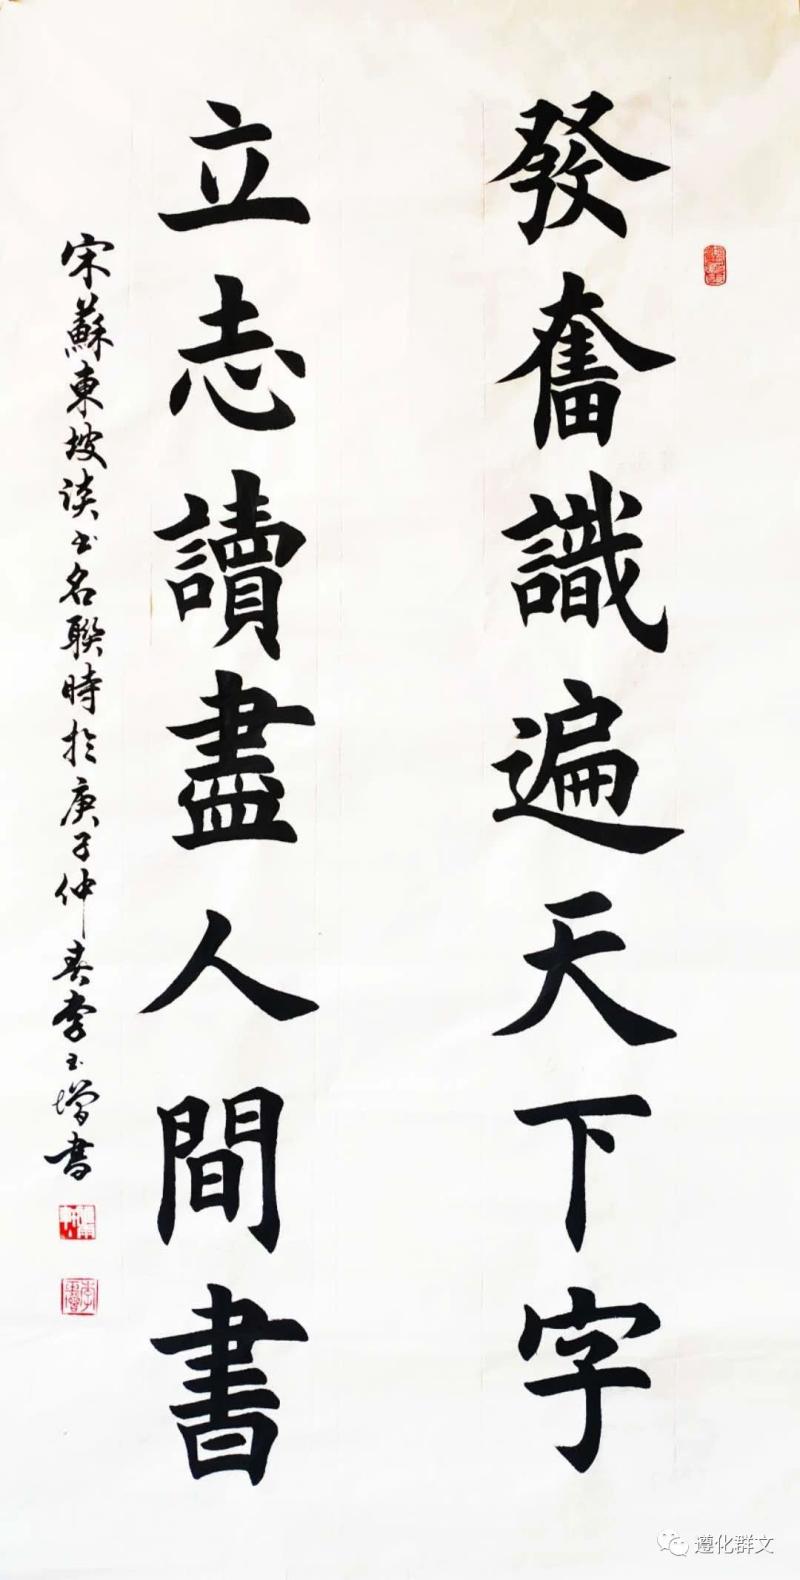 發奮識遍天下字
立志讀盡人間書
宋蘇東坡談书名聯時於庚子仲春李玉增書
遵化群文